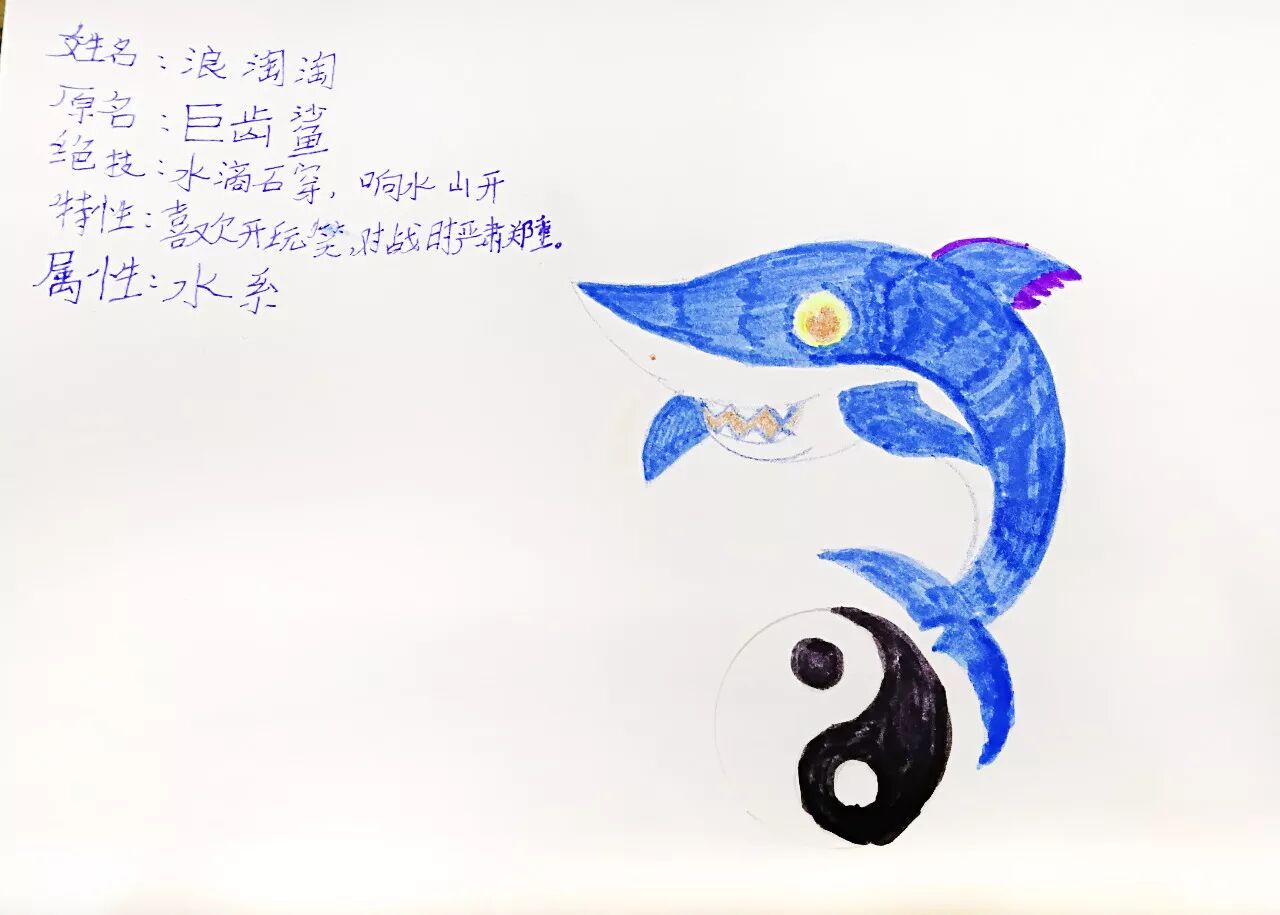 姓名：浪淘淘
原名：巨齿鲨
绝技：水滴石穿，响水山开
特性：喜欢开玩笑，对战时严肃郑重。
属性：水系